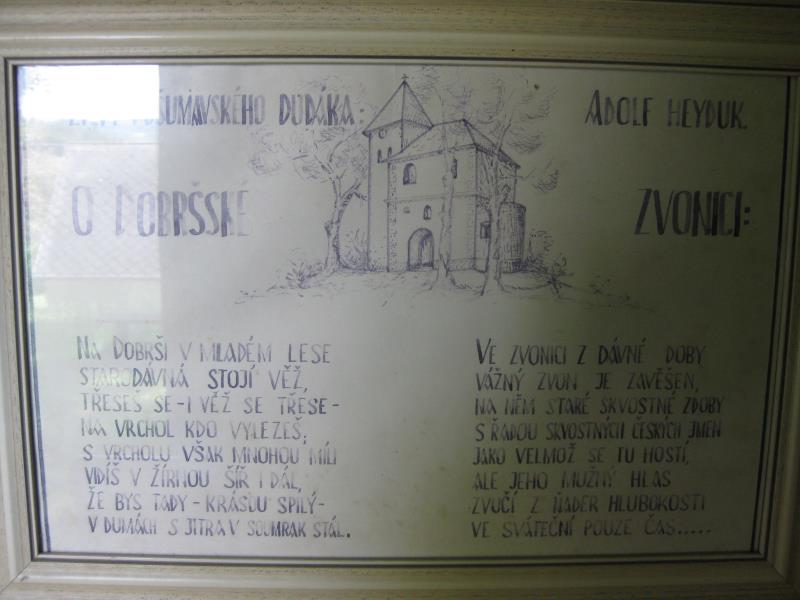 POŠUMAVSKÉHO DUDÁKA:
ADOLF HEYDUK.
O DOBRŠSKÉ
ZVONICI:
NA DOBRŠI V MLADÉM LESE
STARODÁVNÁ STOJÍ VĚŽ,
TŘESEŠ SE - I VĚŽ SE TŘESE -
NA VRCHOL KDO VYLEZEŠ,
S VRCHOLU VŠAK MNOHOU MÍLI
VIDÍŠ V ŽÍRNOU ŠÍŘ I DÁL,
ŽE BYS TADY - KRÁSOU SPILÝ -
V DUMÁCH S JITRA V SOUMRAK STÁL.
VE ZVONICI Z DÁVNÉ DOBY
VÁŽNÝ ZVON JE ZAVĚŠEN,
NA NĚM STARÉ SKVOSTNÉ ZDOBY
S ŘADOU SKVOSTNÝCH ČESKÝCH JMEN
JAKO VELMOŽ SE TU HOSTÍ,
ALE JEHO MUŽNÝ HLAS
ZVUČÍ Z ŇADER HLUBOKOSTI
VE SVÁTEČNÍ POUZE ČAS.....